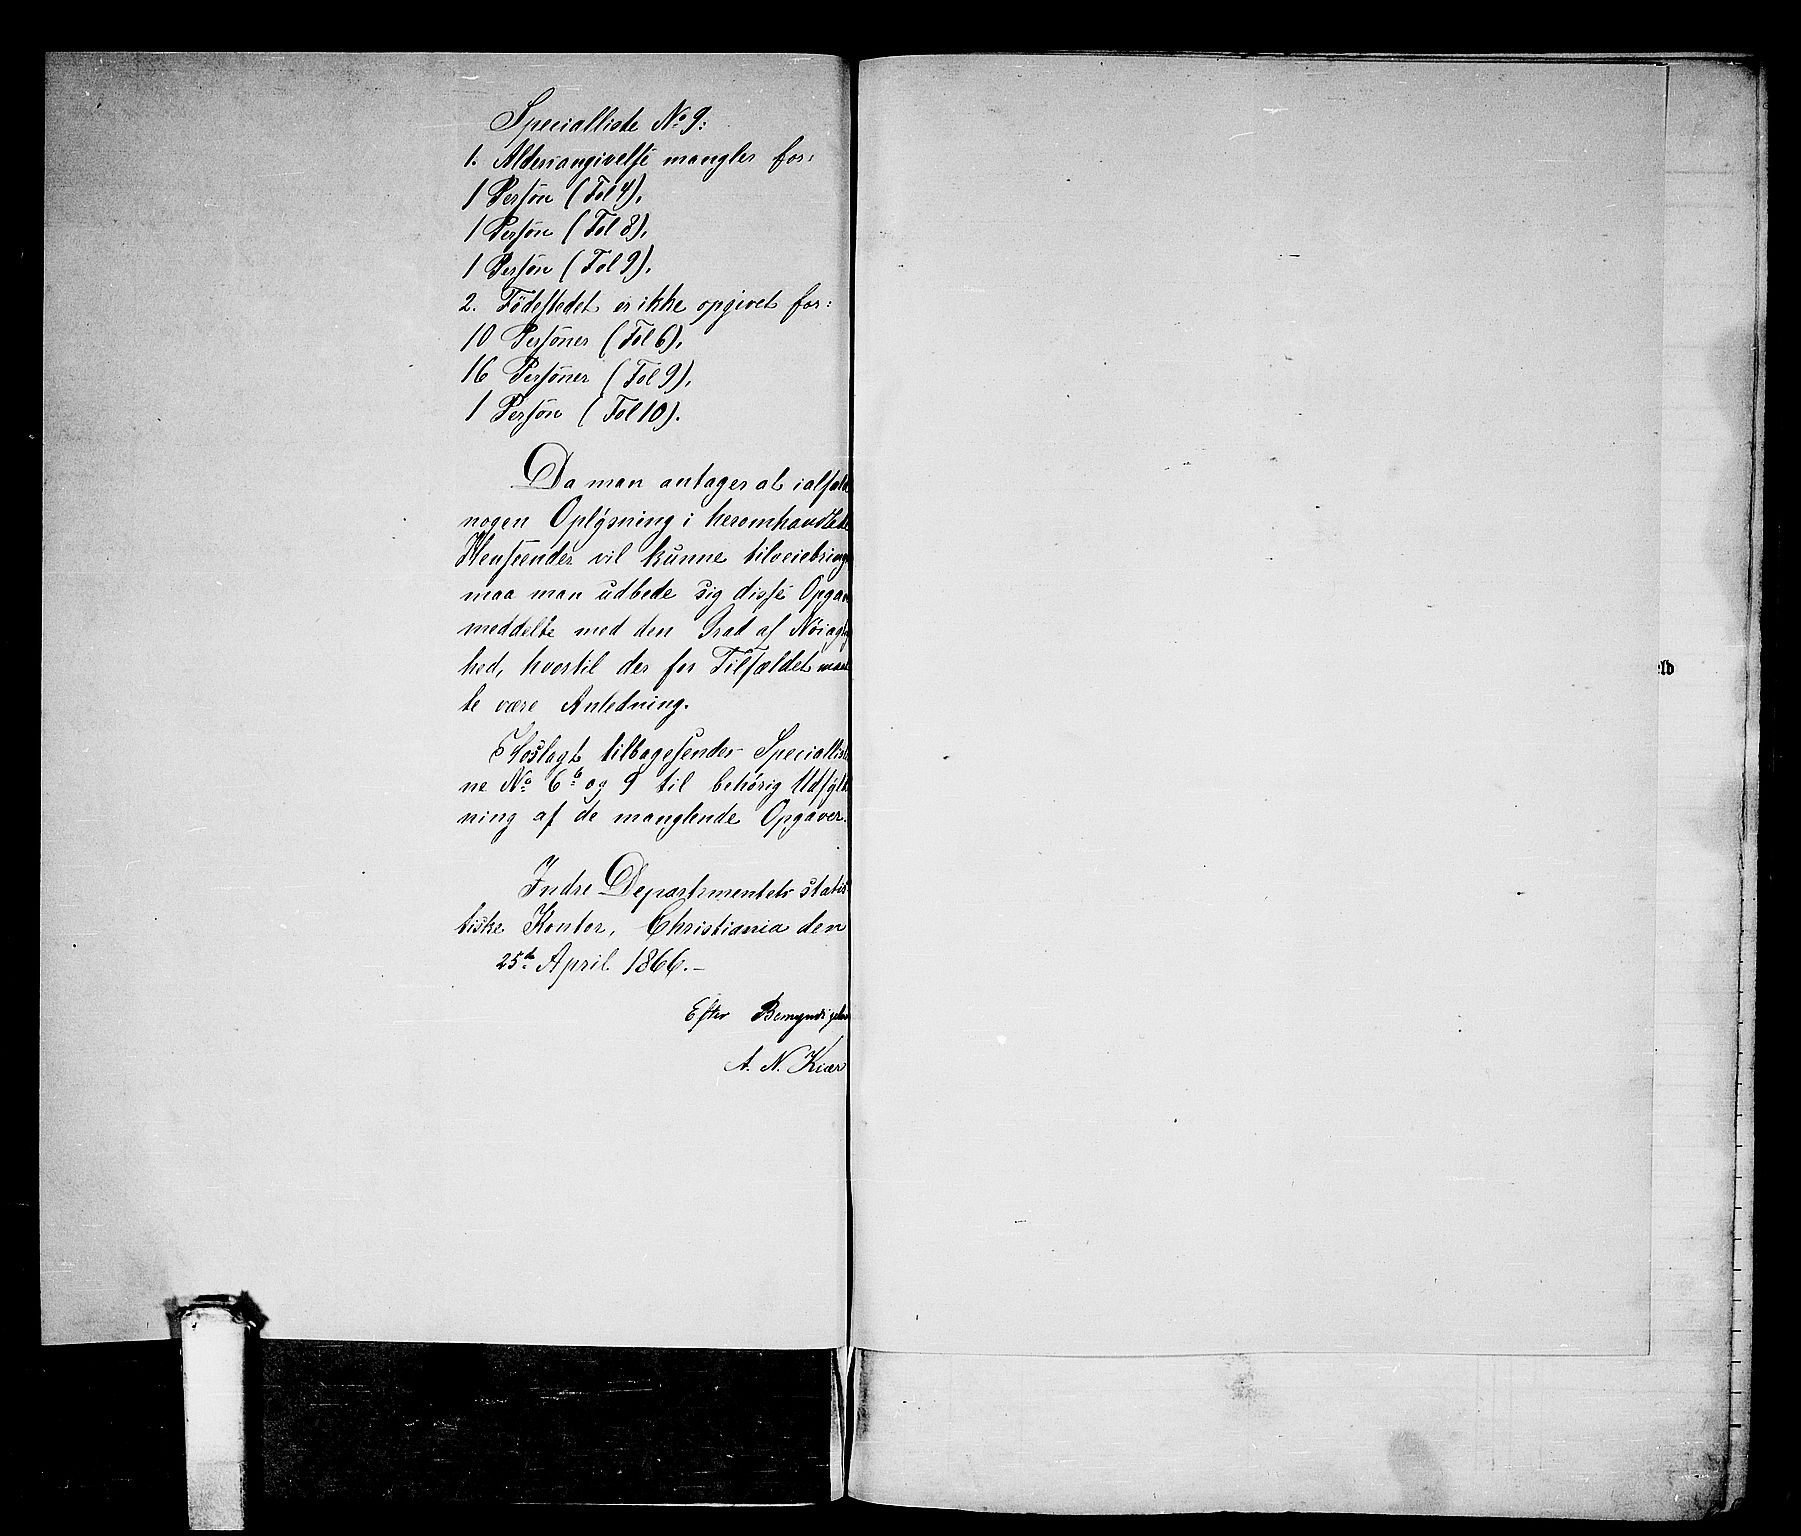 Specialliste No 9:
1. Aldersangivelse mangler for:
1 Person (Fol 4),
1 Person (Fol 8),
1 Person (Fol 9),
2. Fødestedet er ikke opgivet for:
10 Personer (Fol 6),
16 Personer (Fol 9),
1 Person (Fol 10).
Da man antager at ialfald
nogen Oplysning i heromhandlede
Henseender vil kunne tilveiebringe
maa man udbede sig disse Opgav
meddelte med den Grad af Nøiagtig
hed, hvortil der for Tilfældet maat
te være Anledning.
Hoslagt tilbagesender Speciallist
ne No 6b og 9 til behørig Udfyld
ning af de manglende Opgaver.
Indre Departementets statis
tiske Kontor, Christiania den
25de April 1866.-
Efter Bemyndigelse
A. N. Kiær
elb